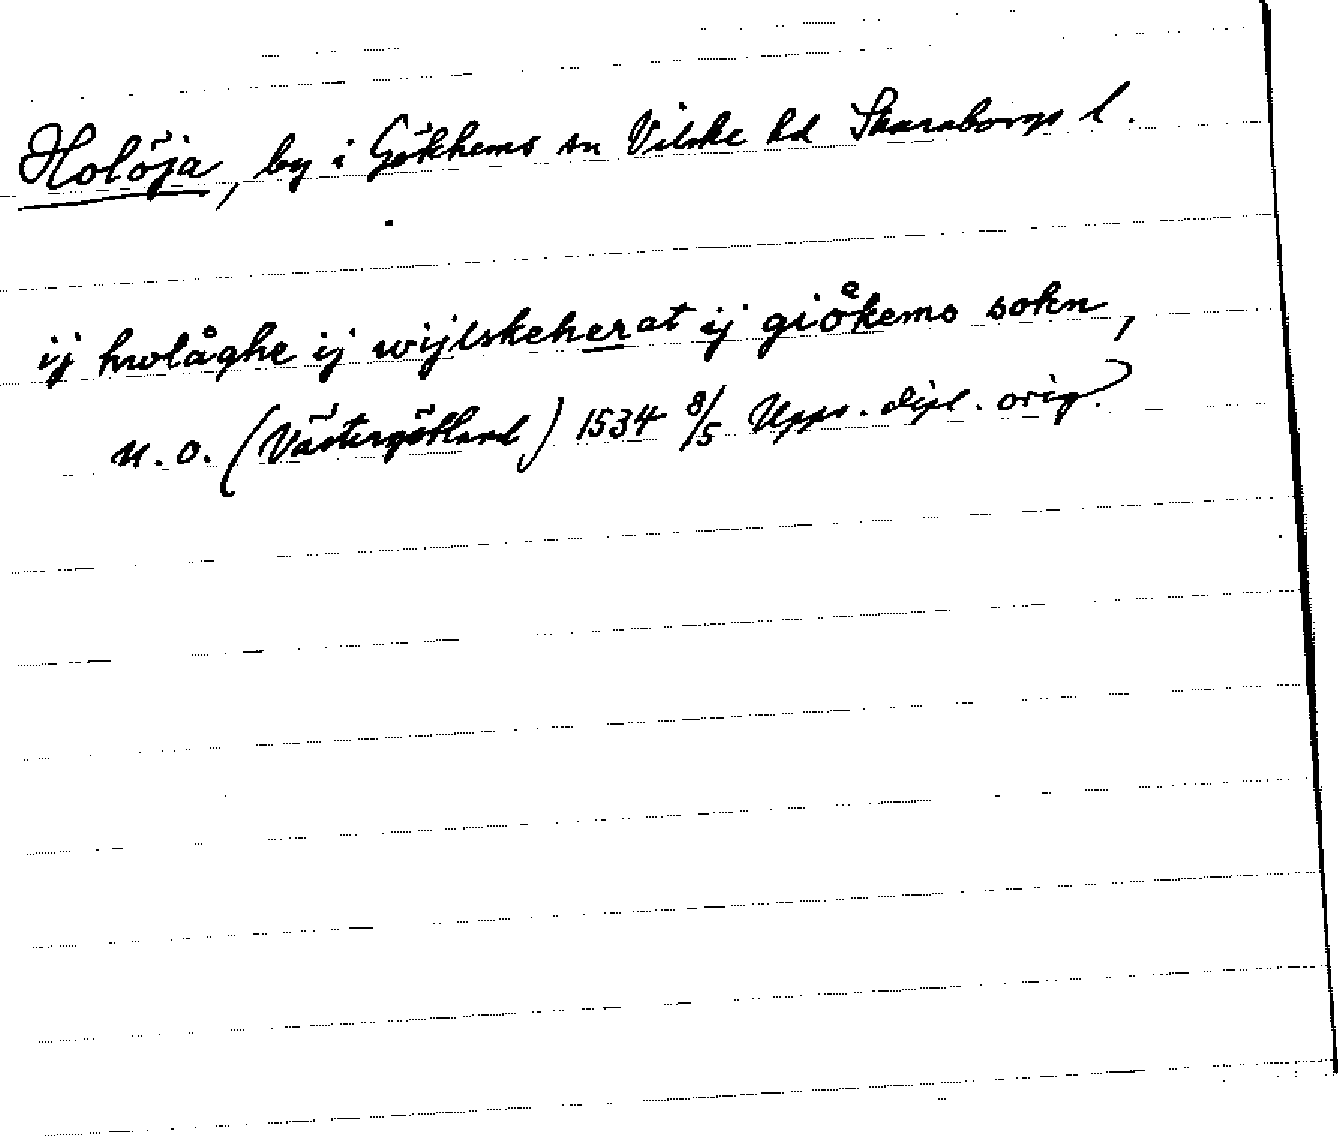 Holöja, by i Gökhems sn Vilske hd Skaraborgs l.
ij hwlåghe ij wijlskeherat ij giökems sokn,
u. o. (Västergötland) 1534 8/5 Upps. dipl. orig.